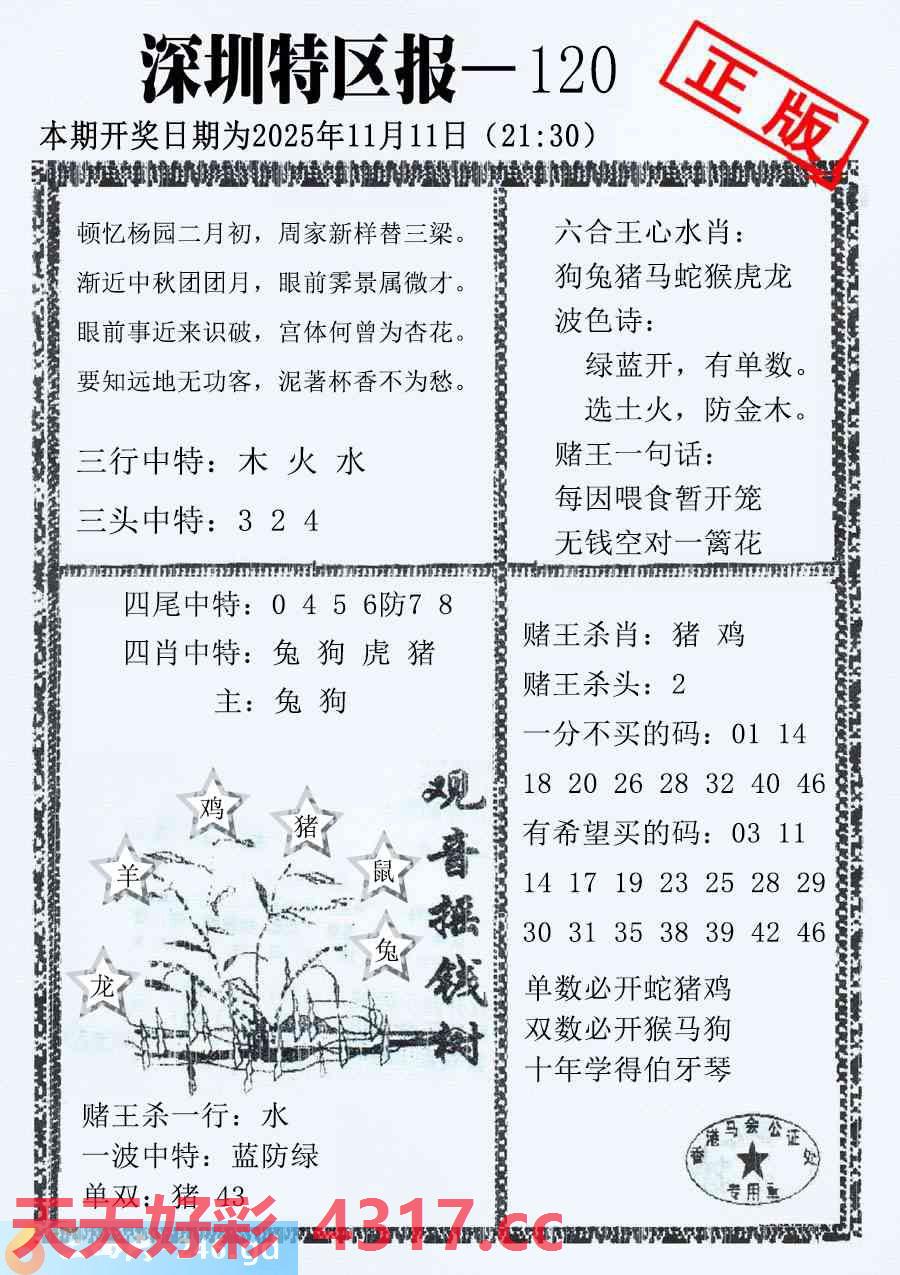 深圳特区报—120
正版
本期开奖日期为2025年11月11日（21:30）
顿忆杨园二月初，周家新样替三梁。
渐近中秋团团月，眼前霁景属微才。
眼前事近来识破，宫体何曾为杏花。
要知远地无功客，泥著杯香不为愁。
三行中特：木 火 水
三头中特：3 2 4
六合王心水肖：
狗兔猪马蛇猴虎龙
波色诗：
绿蓝开，有单数。
选土火，防金木。
赌王一句话：
每因喂食暂开笼
无钱空对一篱花
四尾中特：0 4 5 6防7 8
四肖中特：兔 狗 虎 猪
主：兔 狗
观音摇钱树
鸡
猪
羊
鼠
兔
龙
赌王杀一行：水
一波中特：蓝防绿
单双：猪 43
赌王杀肖：猪 鸡
赌王杀头：2
一分不买的码：01 14
18 20 26 28 32 40 46
有希望买的码：03 11
14 17 19 23 25 28 29
30 31 35 38 39 42 46
单数必开蛇猪鸡
双数必开猴马狗
十年学得伯牙琴
香港马会公证处
专用章
天天好彩 4317.cc